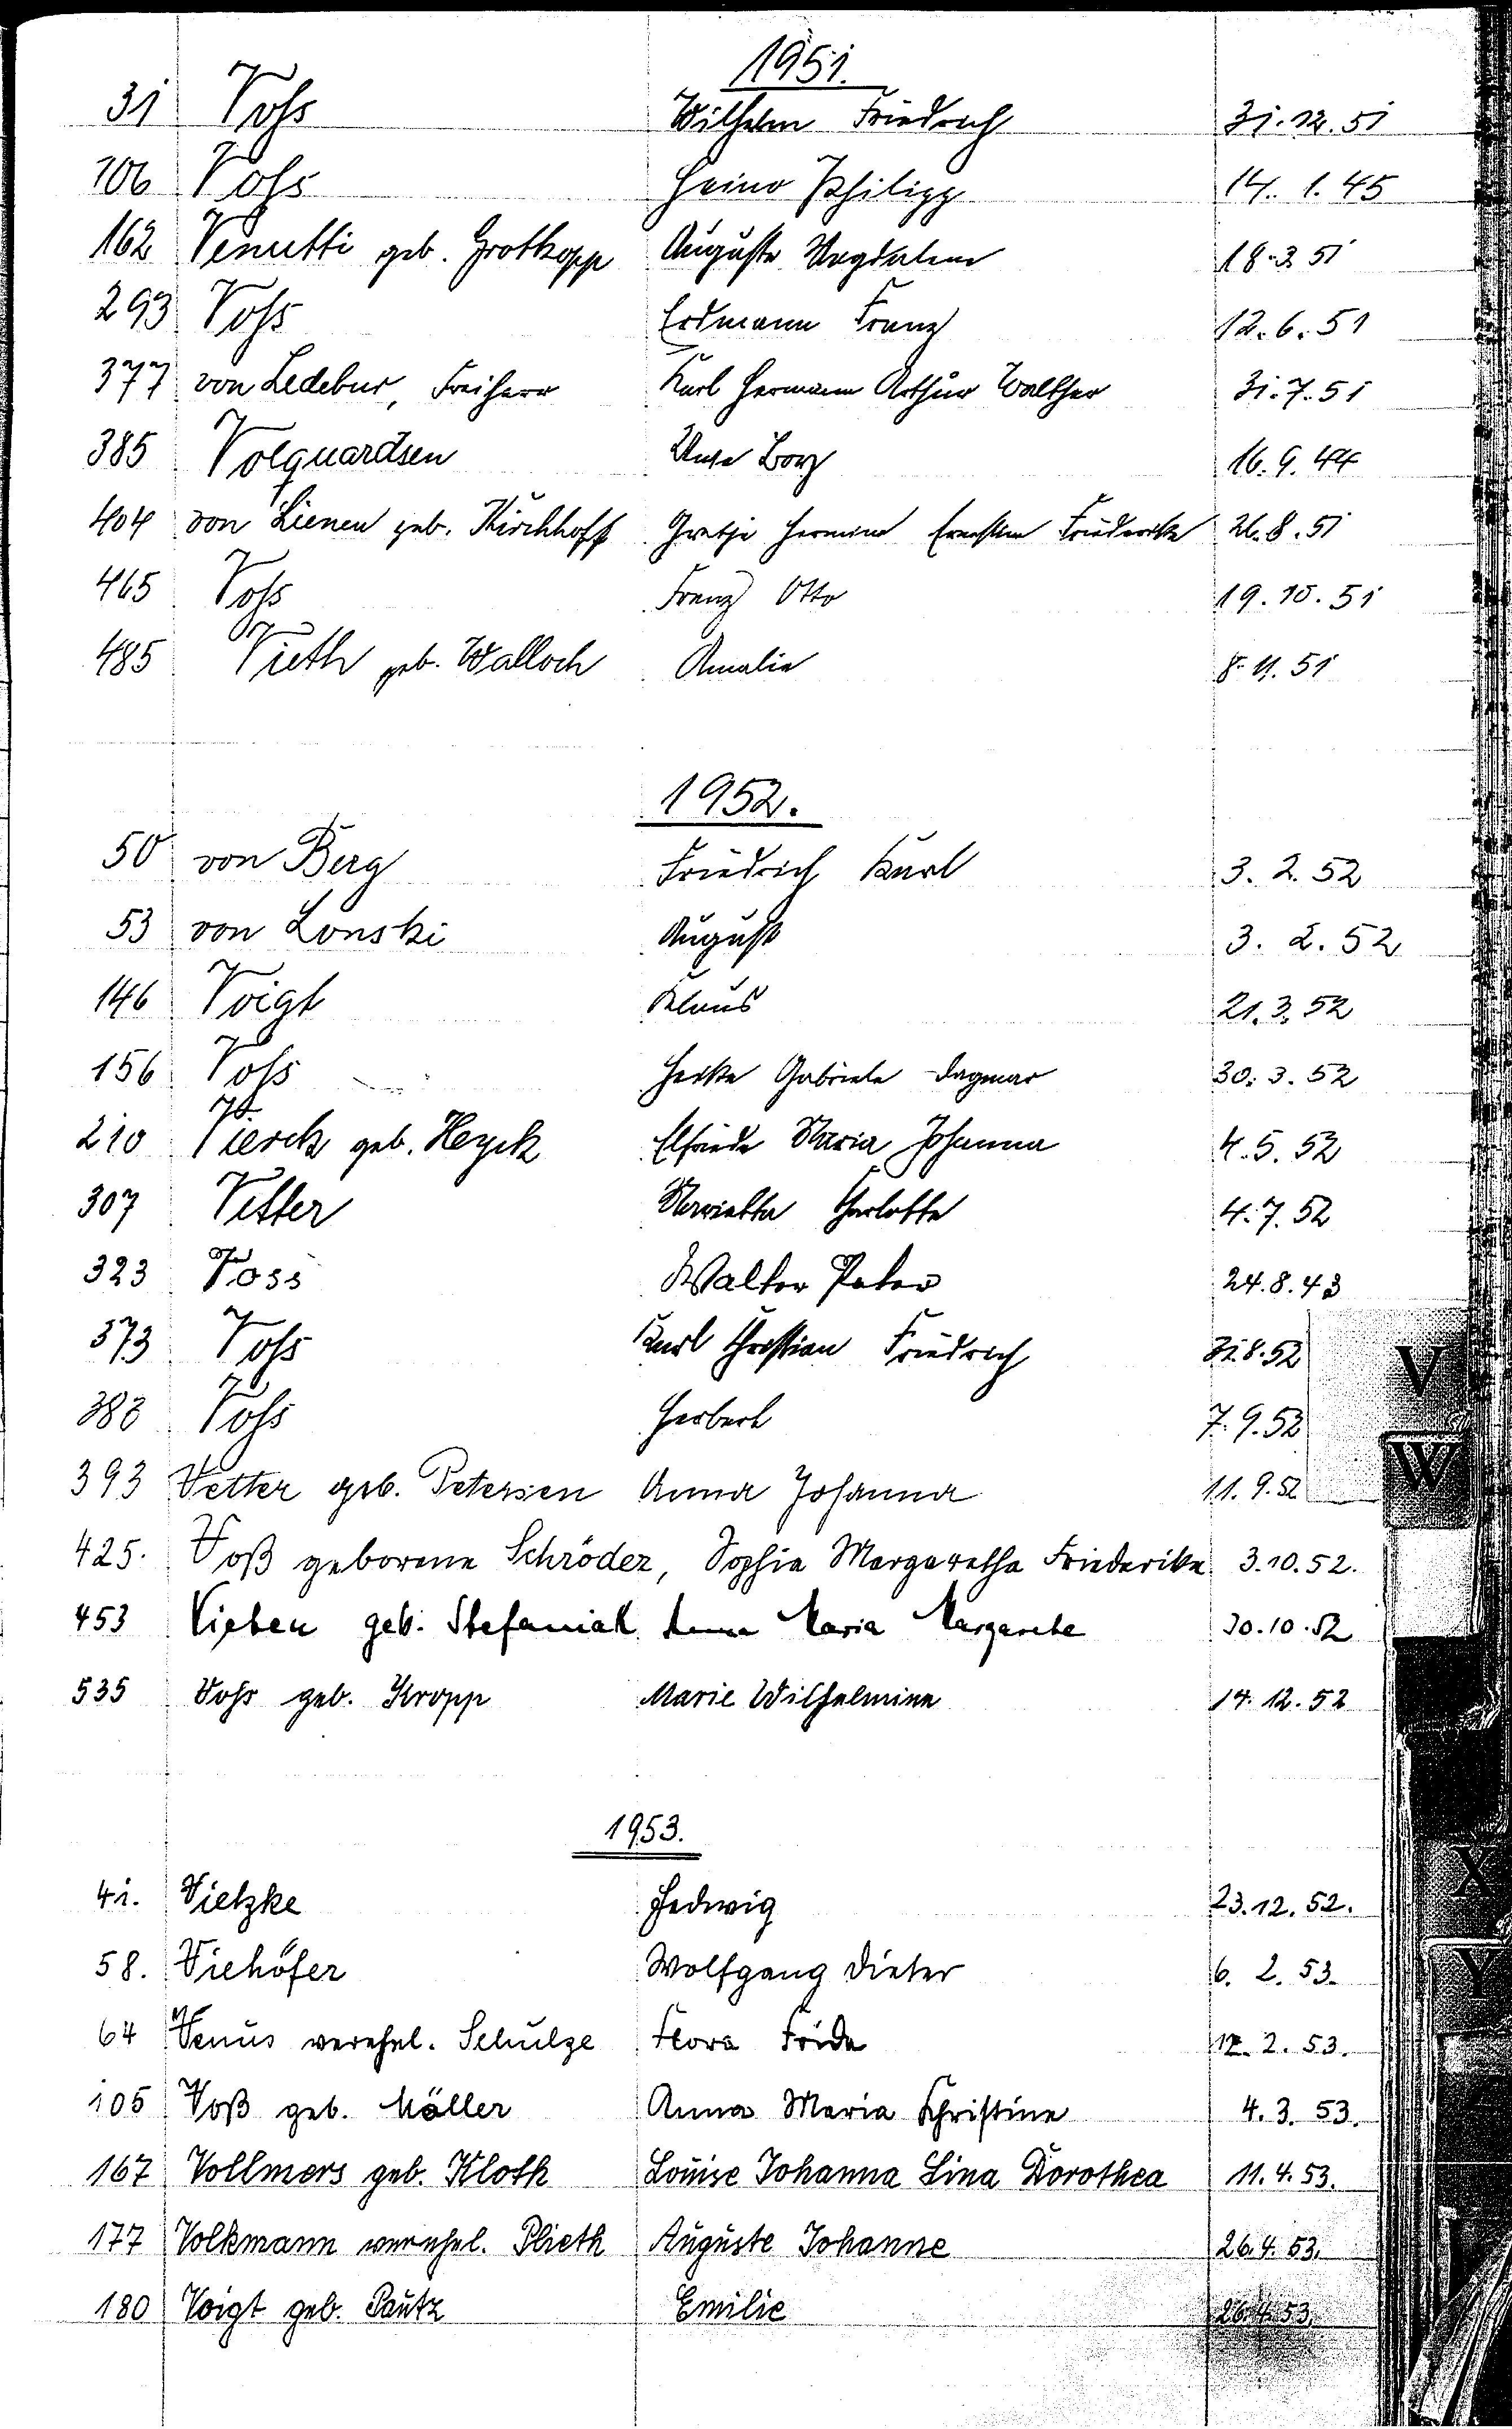 1951.
31 Voss Wilhelm Friedrich 31.12.51
106 Voss Heino Philipp 14. 1. 45
162 Venutti geb. Grotkopp Auguste Magdalena 18.3.51
293 Voss Erdmann Franz 12.6.51
377 von Ledebur, Freiherr Karl Hermann Arthur Walther 31.7.51
385 Volquardsen Uwe 16.9.44
404 von Lienen geb. Kirchhoff Gretje Hermine Ernestine Friederike 26.8.51
465 Voss Franz Otto 19.10.51
485 Vieth geb. Walloch Amalie 8.11.51
1952.
50 von Berg Friedrich Karl 3. 2. 52
53 von Lonski August 3. 2. 52
146 Voigt Klaus 21.3.52
156 Voss Heike Gabriele Dagmar 30.3.52
210 Vierck geb. Heyck Elfriede Maria Johanna 4.5.52
307 Vetter Marietta Charlotte 4.7.52
323 Voss Walter Peter 24.8.43
373 Voss Karl Christian Friedrich 31.8.52
383 Voss Herbert 7.9.52
393 Vetter geb. Petersen Anna Johanna 11.9.52
425. Voß geborene Schröder, Sophie Margaretha Friederike 3.10.52.
453 geb. Stefaniak Anna Maria Margarete 30.10.52
535 Voss geb. Kropp Marie Wilhelmine 14.12.52
1953.
41. Vietzke Hedwig 23.12.52.
58. Viehöfer Wolfgang Dieter 6. 2. 53.
64 Venus verehel. Schulze Flora Frida 2. 53.
105 Voß geb. Möller Anna Maria Christine 4.3.53.
167 Vollmers geb. Kloth Louise Johanna Lina Dorothea 11.4.53.
177 Volkmann verehel. Plieth Auguste Johanne 26.4.53.
180 Voigt geb. Pautz Emilie 26.4.53.
V
W
X
Y